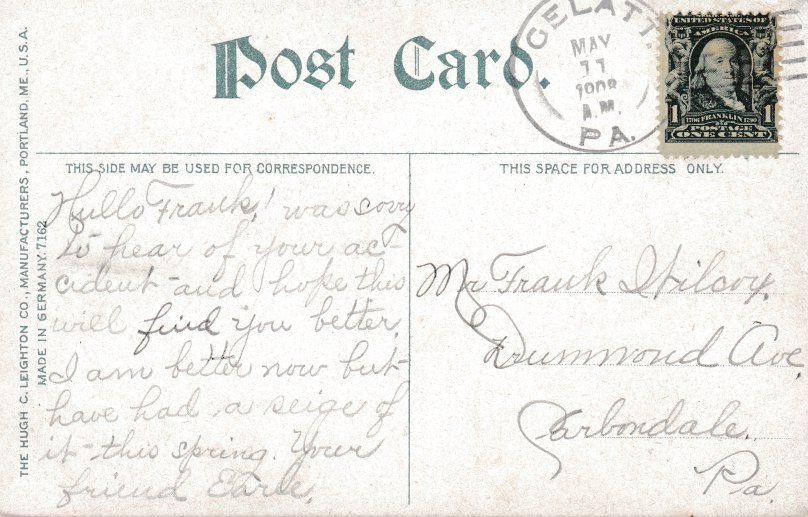 Post Card.
GELATT.
MAY
11
1908
A.M.
PA.
UNITED STATES OF
AMERICA
1 1706 FRANKLIN 1790 1
POSTAGE
ONE CENT
THIS SIDE MAY BE USED FOR CORRESPONDENCE.
THIS SPACE FOR ADDRESS ONLY.
THE HUGH C. LEIGHTON CO., MANUFACTURERS, PORTLAND, ME., U.S.A.
MADE IN GERMANY. 7162
Hullo Frank! was sorry
to hear of your ac-
cident and hope this
will find you better,
I am better now but
have had a seige of
it this spring. Your
friend Earle.
Mr Frank Wilcox,
Drummond Ave,
Carbondale,
Pa.